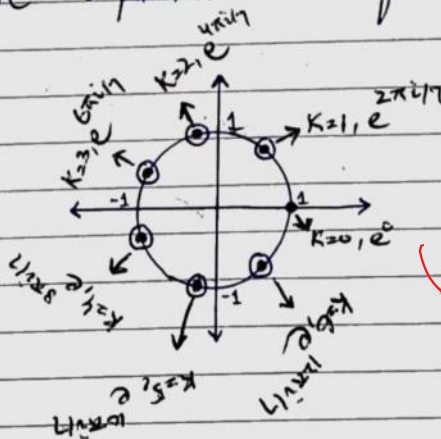 K=2, e^4πi/7
K=1, e^2πi/7
K=3, e^6πi/7
1
-1
1
K=0, e^0
K=4, e^8πi/7
-1
K=6, e^12πi/7
K=5, e^10πi/7